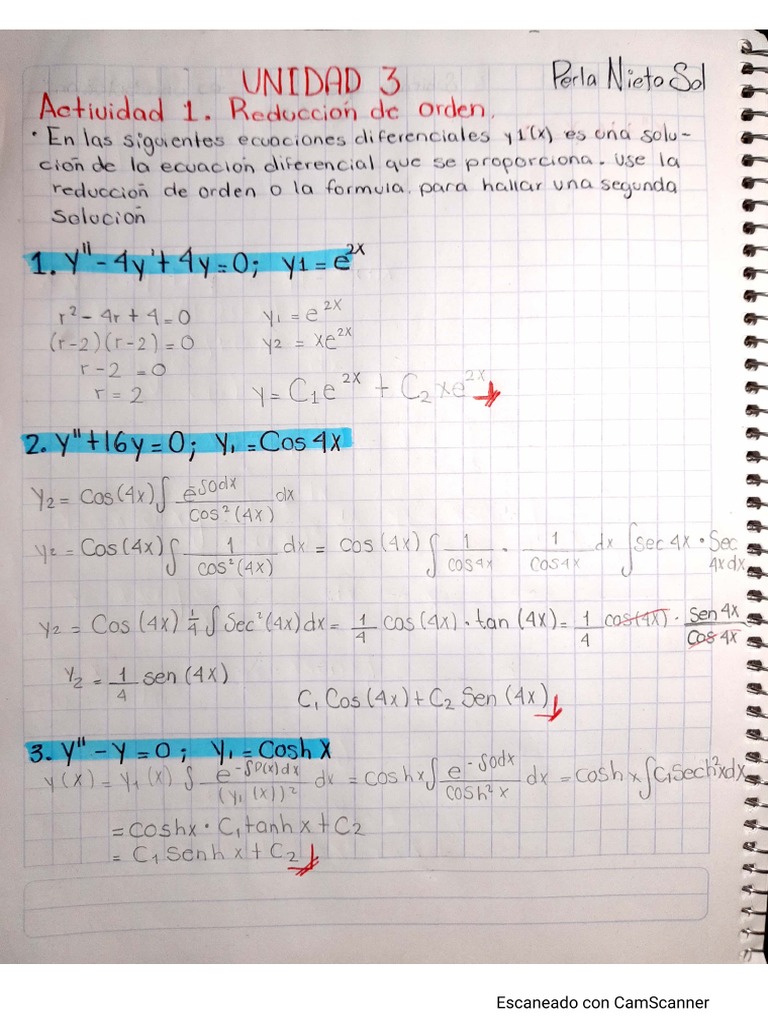 UNIDAD 3 Perla Nieto Sol
Actividad 1. Reducción de orden.
• En las siguientes ecuaciones diferenciales y1(x) es una solu-
ción de la ecuación diferencial que se proporciona. Use la
reducción de orden o la formula, para hallar una segunda
solución
1. y'' - 4y' + 4y = 0; y1 = e^2x
r² - 4r + 4 = 0 y₁ = e^2x
(r-2)(r-2) = 0 y2 = xe^2x
r - 2 = 0
r = 2 y = C₁e^2x + C₂xe^2x
2. y'' + 16y = 0; y₁ = Cos 4x
y₂ = Cos(4x) ∫ e^-∫0dx / cos²(4x) dx
y₂ = Cos(4x) ∫ 1/cos²(4x) dx = cos(4x) ∫ 1/cos4x · 1/cos4x dx ∫ sec 4x · Sec 4x dx
y₂ = Cos(4x) 1/4 ∫ Sec²(4x) dx = 1/4 cos(4x) · tan(4x) = 1/4 cos(4x) · sen 4x / cos 4x
y₂ = 1/4 sen(4x)
C₁ Cos(4x) + C₂ Sen(4x)
3. y'' - y = 0; y₁ = Cosh x
y(x) = y₁(x) ∫ e^-∫P(x)dx / (y₁(x))² dx = cosh x ∫ e^-∫0dx / cosh² x dx = cosh x ∫ C₁ Sech² x dx
= coshx · C₁ tanh x + C2
= C₁ Senh x + C₂
Escaneado con CamScanner